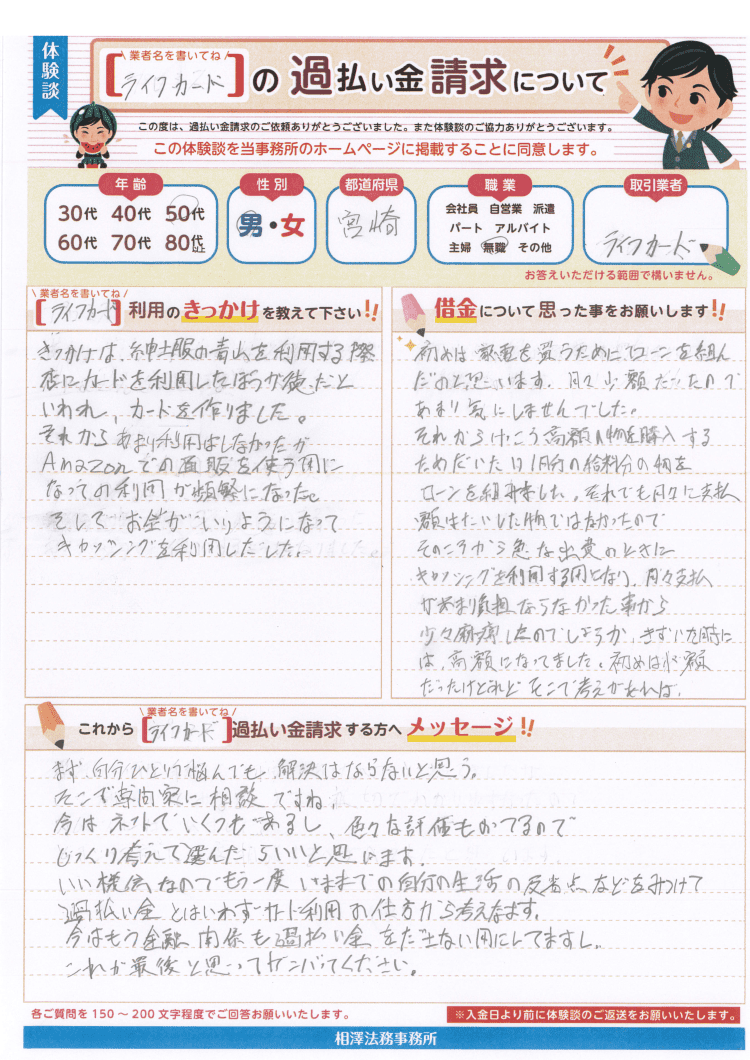 体験談
\ 業者名を書いてね /
[ライフカード]の 過払い金 請求について
この度は、過払い金請求のご依頼ありがとうございました。また体験談のご協力ありがとうございます。
この体験談を当事務所のホームページに掲載することに同意します。
年齢
30代 40代 50代
60代 70代 80代以上
性別
男・女
都道府県
宮崎
職業
会社員 自営業 派遣
パート アルバイト
主婦 無職 その他
取引業者
ライフカード
お答えいただける範囲で構いません。
\ 業者名を書いてね /
[ライフカード]利用のきっかけを教えて下さい!!
きっかけは、紳士服の青山を利用する際
店にカードを利用したほうが
いわれ、カードを作りました。
それからあまり利用はしなかったが
Amazonでの直販を使う用に
なっての利用が頻繁になった。
そして お金がいりようになって
キャッシングを利用した
借金について思った事をお願いします!!
初めは 家電を買うためにローンを組ん
だのと思います。月々少額だったので
あまり気にしませんでした。
それからけっこう高額 物を購入する
ためだいたい1月分の給料分の物を
ローンを組みました。それでも月々に支払
額はたいした物ではなかったので
そのころから急な出費のときに
キャッシングを利用する用になり、月々支払
があまり負担ならなかった事から
少々麻痺したのでしょうか、きずいた時に
は、高額になってました。初めは小額
だったけどそこで考えがあれば、
\ 業者名を書いてね /
これから[ライフカード]過払い金請求する方へメッセージ!!
まず、自分ひとりで悩んでも 解決はならないと思う。
そこで専門家に相談ですね。
今はネットでいくつもあるし、色々な評価もかてるので
じっくり考えて選んだらいいと思います。
いい機会なのでもう一度 いままでの自分の生活の反省点などをみつけて
過払い金とはいわずカード利用の仕方から考えなおす。
今はもう金融関係も過払い金をださない用にしてますし、
これが最後と思ってガンバってください。
各ご質問を150～200文字程度でご回答お願いいたします。
※入金日より前に体験談のご返送をお願いいたします。
相澤法務事務所